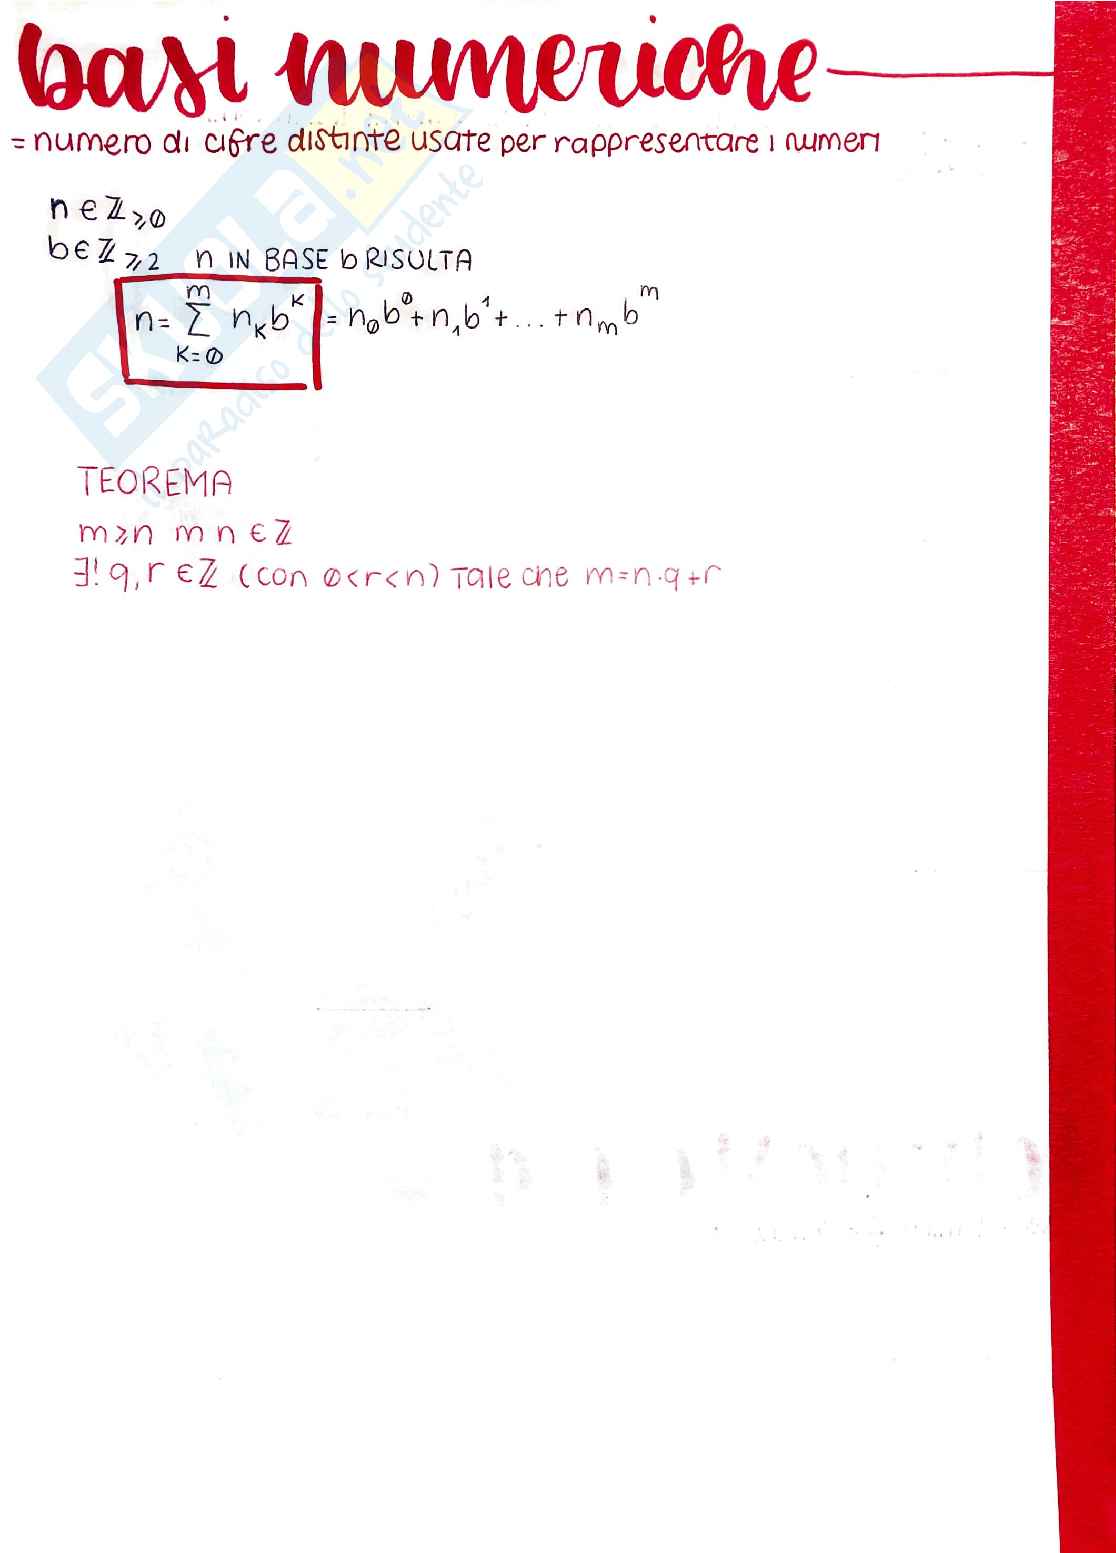 basi numeriche
= numero di cifre distinte usate per rappresentare i numeri
n ∈ ℤ ⩾0
b ∈ ℤ ⩾2 n IN BASE b RISULTA
n = ∑_{k=0}^{m} n_k b^k = n_0 b^0 + n_1 b^1 + ... + n_m b^m
TEOREMA
m ⩾ n m n ∈ ℤ
∃! q, r ∈ ℤ (con 0 < r < n) Tale che m = n · q + r
SKUOLA.net
il paradiso dello studente